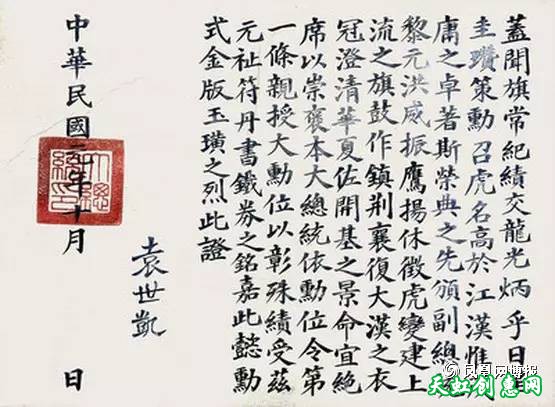 蓋聞旗常紀績交龍光炳乎日
圭瓚策勳召虎名高於江漢惟
庸之卓著斯榮典之先頒副總
黎元洪威振鷹揚休徵虎變建上
流之旗鼓作鎮荊襄復大漢之衣
冠澄清華夏佐開基之景命宜絶
席以崇褒本大總統依勳位令第
一條親授大勳位以彰殊績受茲
元祉符丹書鐵券之銘嘉此懿勳
式金版玉璜之烈此證
袁世凱
中華民國二年十月 日
凤凰网博报
天虹创意网